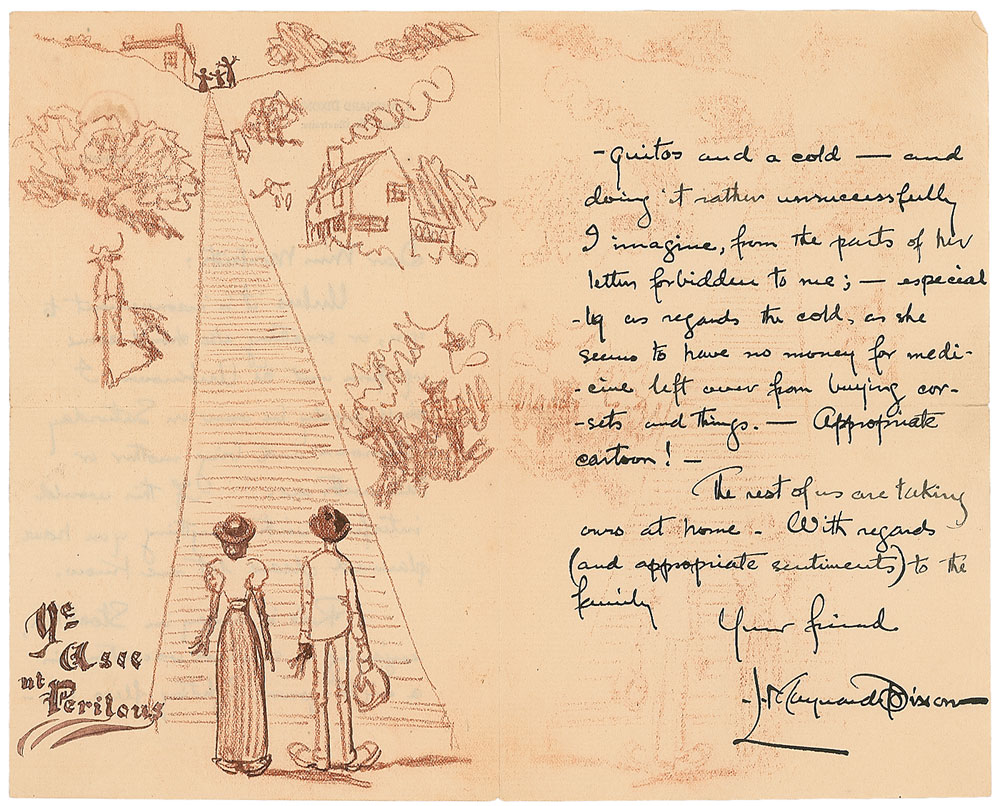 Ye
Asce
nt
Perilous
-quitos and a cold — and
doing it rather unsuccessfully
I imagine, from the parts of her
letter forbidden to me; — especial
-ly as regards the cold, as she
seems to have no money for medi-
-cine left over from buying cor-
-sets and things. — Appropriate
cartoon! —
The rest of us are taking
ours at home. With regards
(and appropriate sentiments) to the
family
Your friend
-L. Maynard Dixon-